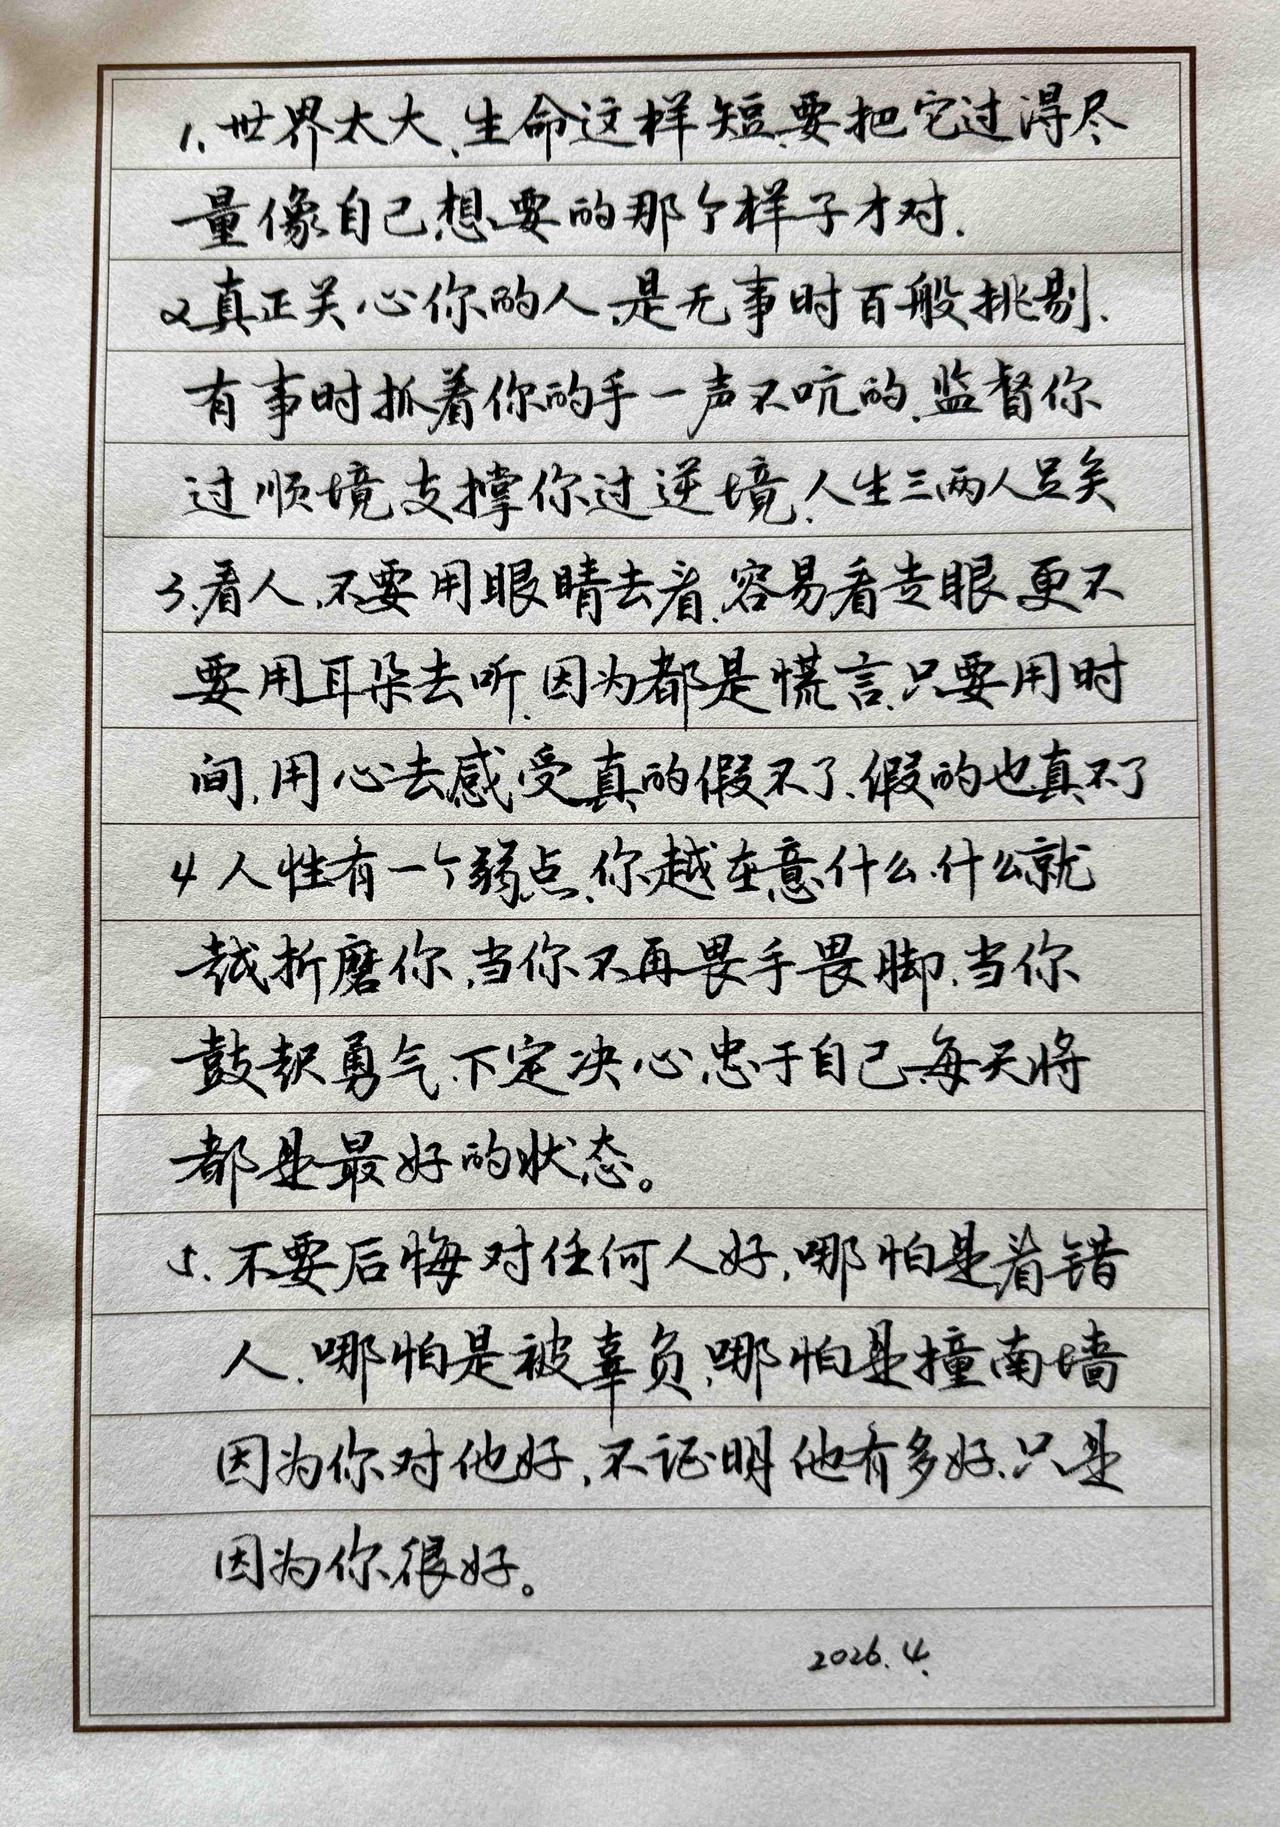 1.世界太大、生命这样短、要把它过得尽
量像自己想要的那个样子才对.
2.真正关心你的人、是无事时百般挑剔、
有事时抓着你的手一声不吭的、监督你
过顺境支撑你过逆境、人生三两人足矣
3.看人、不要用眼睛去看、容易看走眼更不
要用耳朵去听、因为都是慌言、只要用时
间,用心去感受真的假不了、假的也真不了
4 人性有一个弱点、你越在意什么、什么就
越折磨你、当你不再畏手畏脚、当你
鼓起勇气、下定决心忠于自己、每天将
都是最好的状态。
5.不要后悔对任何人好,哪怕是看错
人、哪怕是被辜负,哪怕是撞南墙
因为你对他好,不证明他有多好、只是
因为你很好。
2026.4.